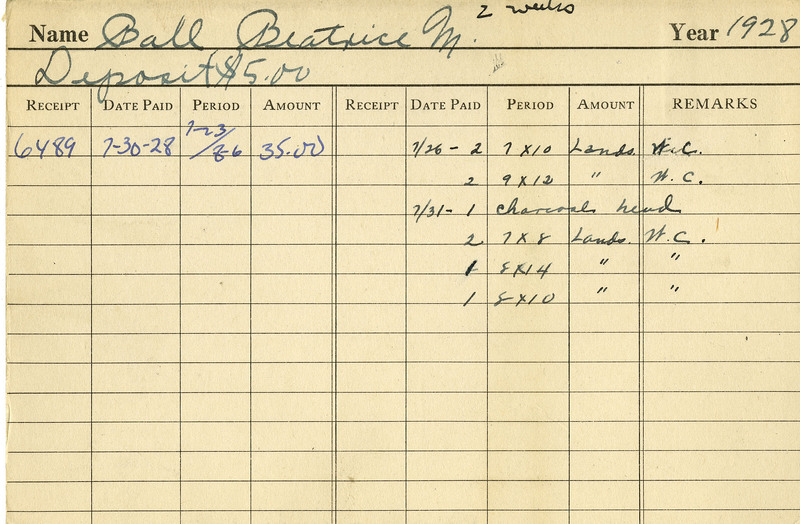 2 weeks
Name Ball Beatrice M. Year 1928
Deposit $5.00
RECEIPT DATE PAID PERIOD AMOUNT RECEIPT DATE PAID PERIOD AMOUNT REMARKS
6489 7-30-28 7-23/8-6 35.00 7/26- 2 7 X 10 Lands. W.C.
2 9 X 12 " W.C.
7/31- 1 charcoals head
2 7 X 8 Lands. W.C.
1 8 X 14 " "
1 8 X 10 " "